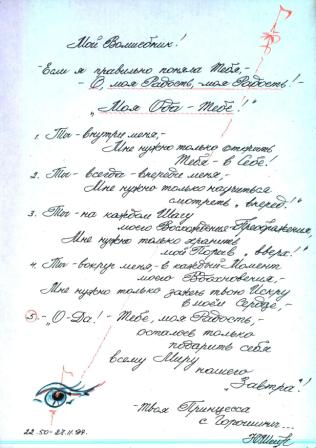 Мой Волшебник!
- Если я правильно поняла Тебя, -
- О, моя Радость, - моя Радость! -
"Моя Ода - Тебе!"
1. Ты - внутри меня, -
Мне нужно только открыть
Тебя - в Себе!
2. Ты - всегда - впереди меня, -
Мне нужно только научиться
смотреть "вперед!"
3. Ты - на каждом Шагу
моего Восхождения - Преображения,
Мне нужно только хранить
мой Порыв "вверх!"
4. Ты - вокруг меня, - в каждый Момент
моего Вдохновения, -
Мне нужно только зажечь твою Искру
в моём Сердце, -
5. - "О - Да! - Тебе, моя Радость, -
осталось только
подарить себя
всему Миру
нашего
"Завтра"!
- Твоя Принцесса
с Горошины...
22.50 - 27.11.99.